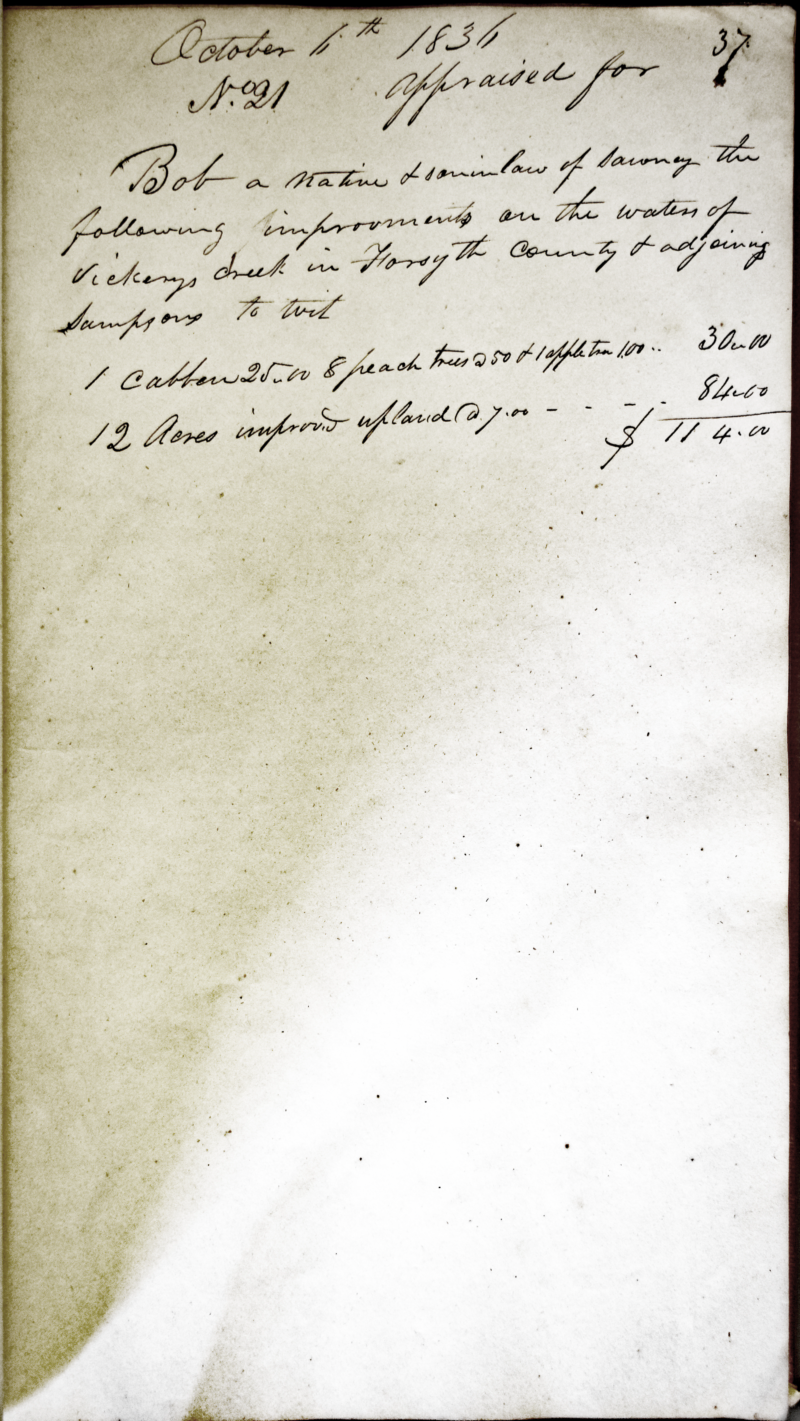 October 6th 1836 37
No. 21 appraised for
Bob a native & soninlaw of Sawney the
following improvments on the waters of
Vickerys Creek in Forsyth County & adjoining
Sampsons to wit
1 Cabben 25.00 8 peach trees @ 50 & 1 apple tree 1.00 .. 30.00
12 Acres improvd upland @ 7.00 - - - - 84.00
$ 114.00